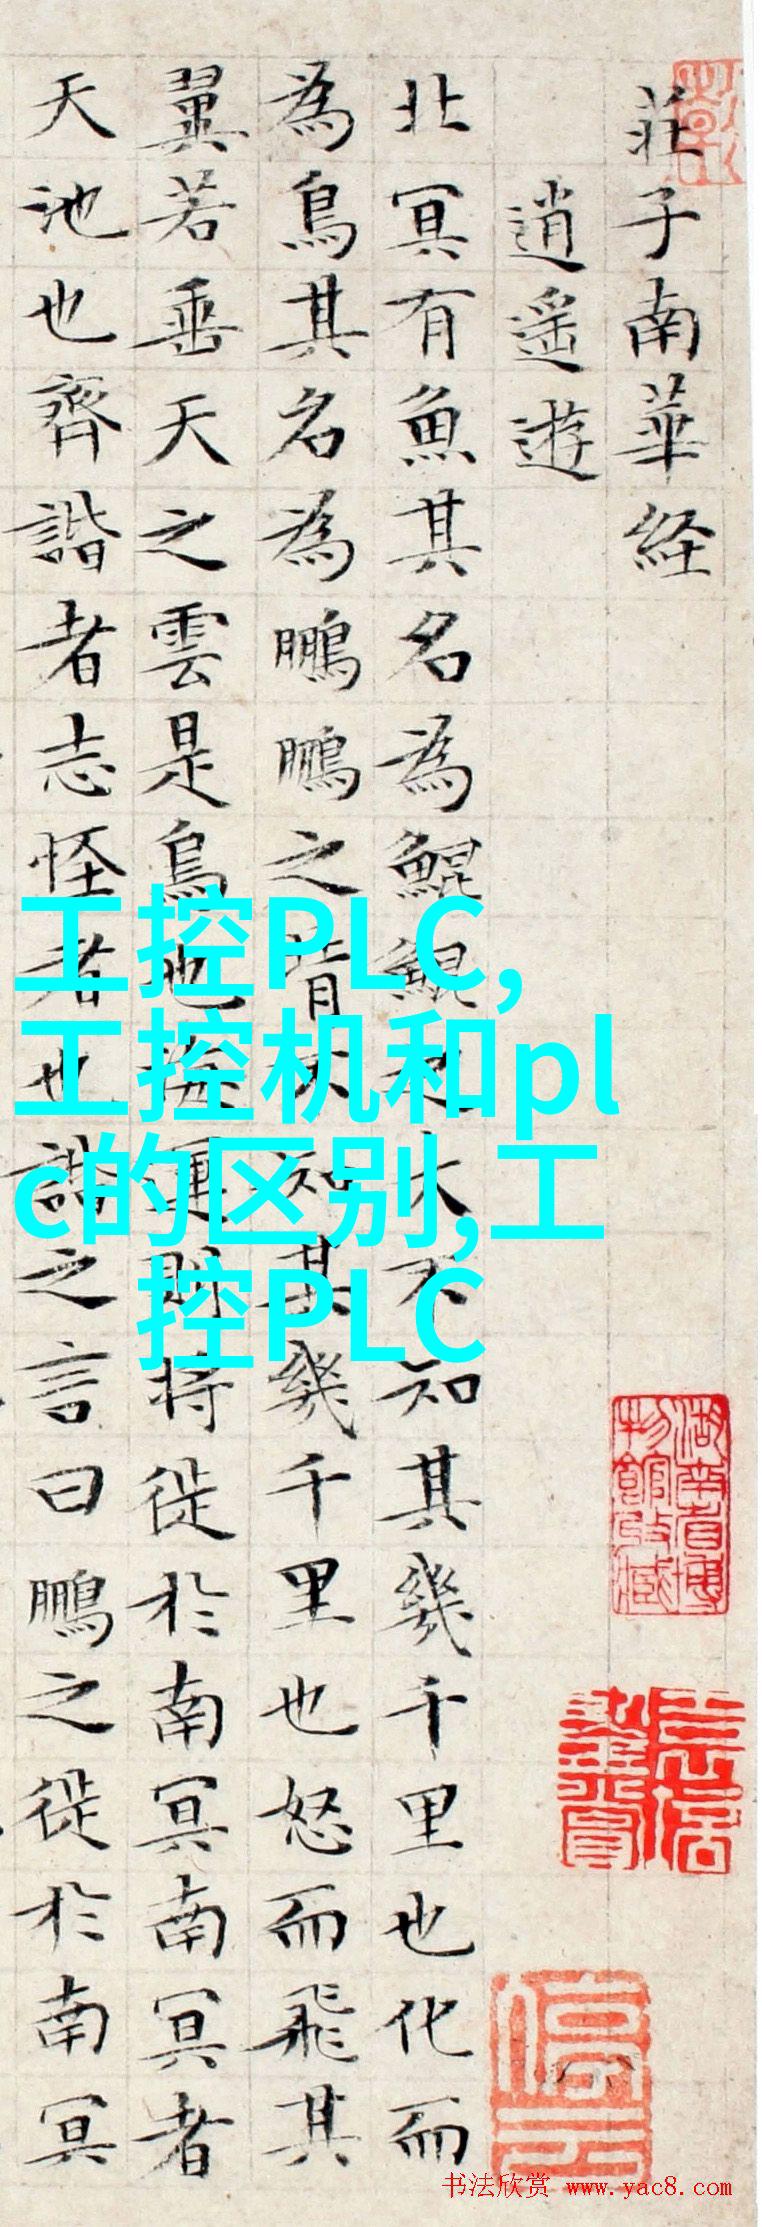 莊子南華経
逍遥遊
北冥有魚其名為鯤鯤之大不知其幾千里也化而
為鳥其名為鵬鵬之背不知其幾千里也怒而飛其
翼若垂天之雲是鳥也海運則将徙於南冥南冥者
天池也齊諧者志怪者也諧之言曰鵬之徙於南冥
工控PLC,
工控机和pl
c的区别,工
控PLC
湖南省博
物館收藏
书法欣赏 www.yac8.com